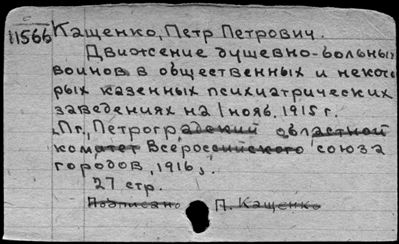 11566 Кащенко, Петр Петрович.
Движение душевно-больных
воинов в общественных и некото-
рых казенных психиатрических
заведениях на 1 нояб. 1915 г.
Пг., Петроградский областной
комитет Всероссийского союза
городов, 1916,.
27 стр.
Подписано П. Кащенко